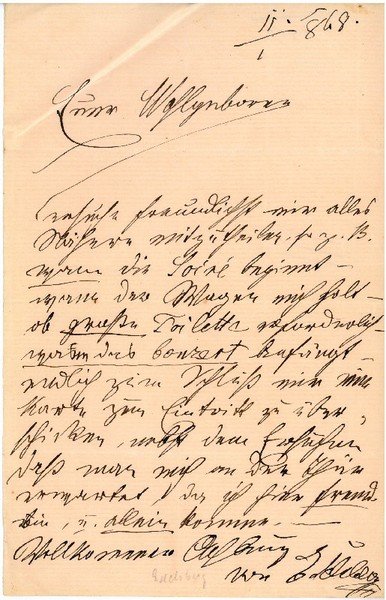 11. 1. 868.
Euer Wohlgeboren
ersuche freundlichst mir alles
Nähere mitzutheilen, so z. B.
wann die Soiré beginnt –
wann der Wagen mich holt –
ob große Toilette erforderlich –
wann das Conzert anfängt –
endlich zum Schluß mir eine
Karte zum Eintritt zu über-
schicken, nebst dem Ersuchen
daß man mich an der Thür
erwartet, da ich hier fremd
bin, u. allein komme. –
Vollkommener Achtung
von